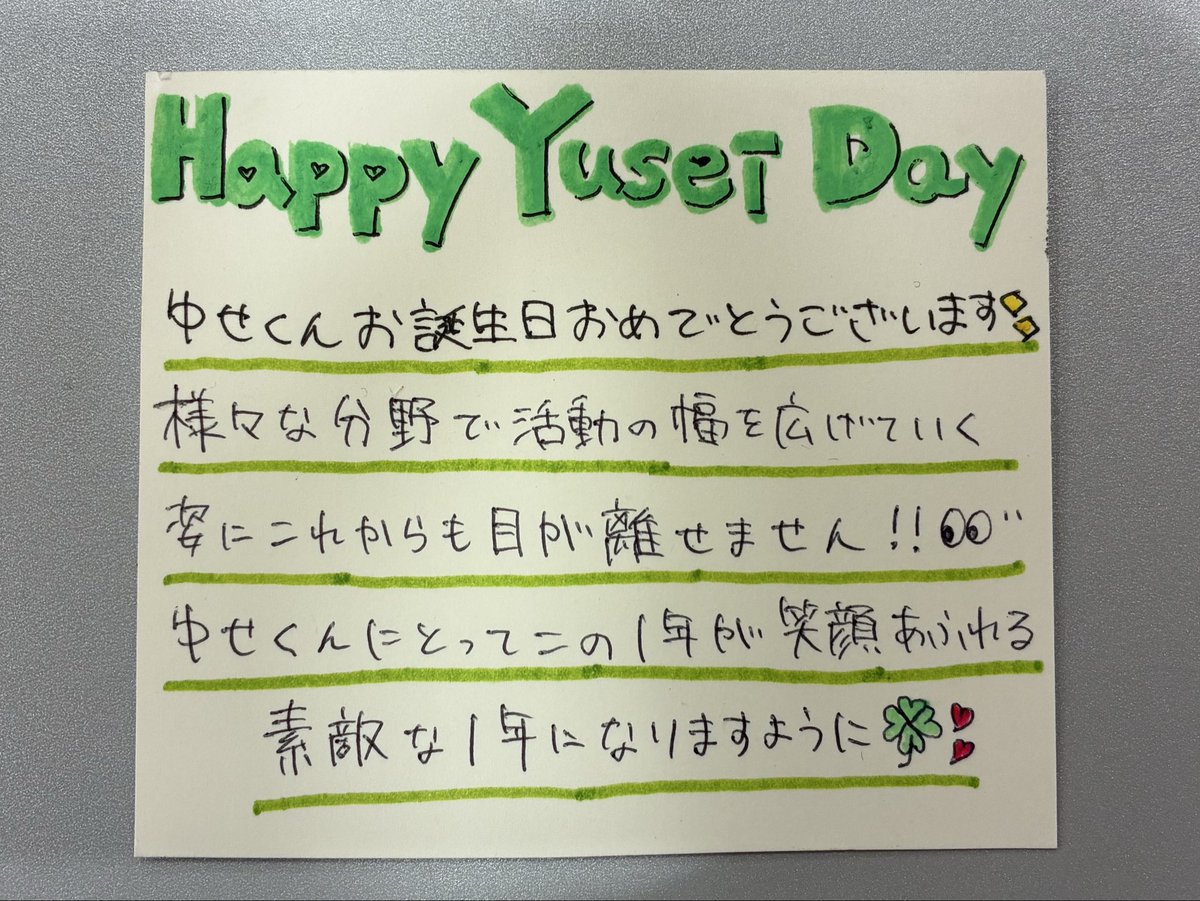 Happy Yusei Day
ゆせくんお誕生日おめでとうございます
様々な分野で活動の幅を広げていく
姿にこれからも目が離せません!!
ゆせくんにとってこの1年が笑顔あふれる
素敵な1年になりますように